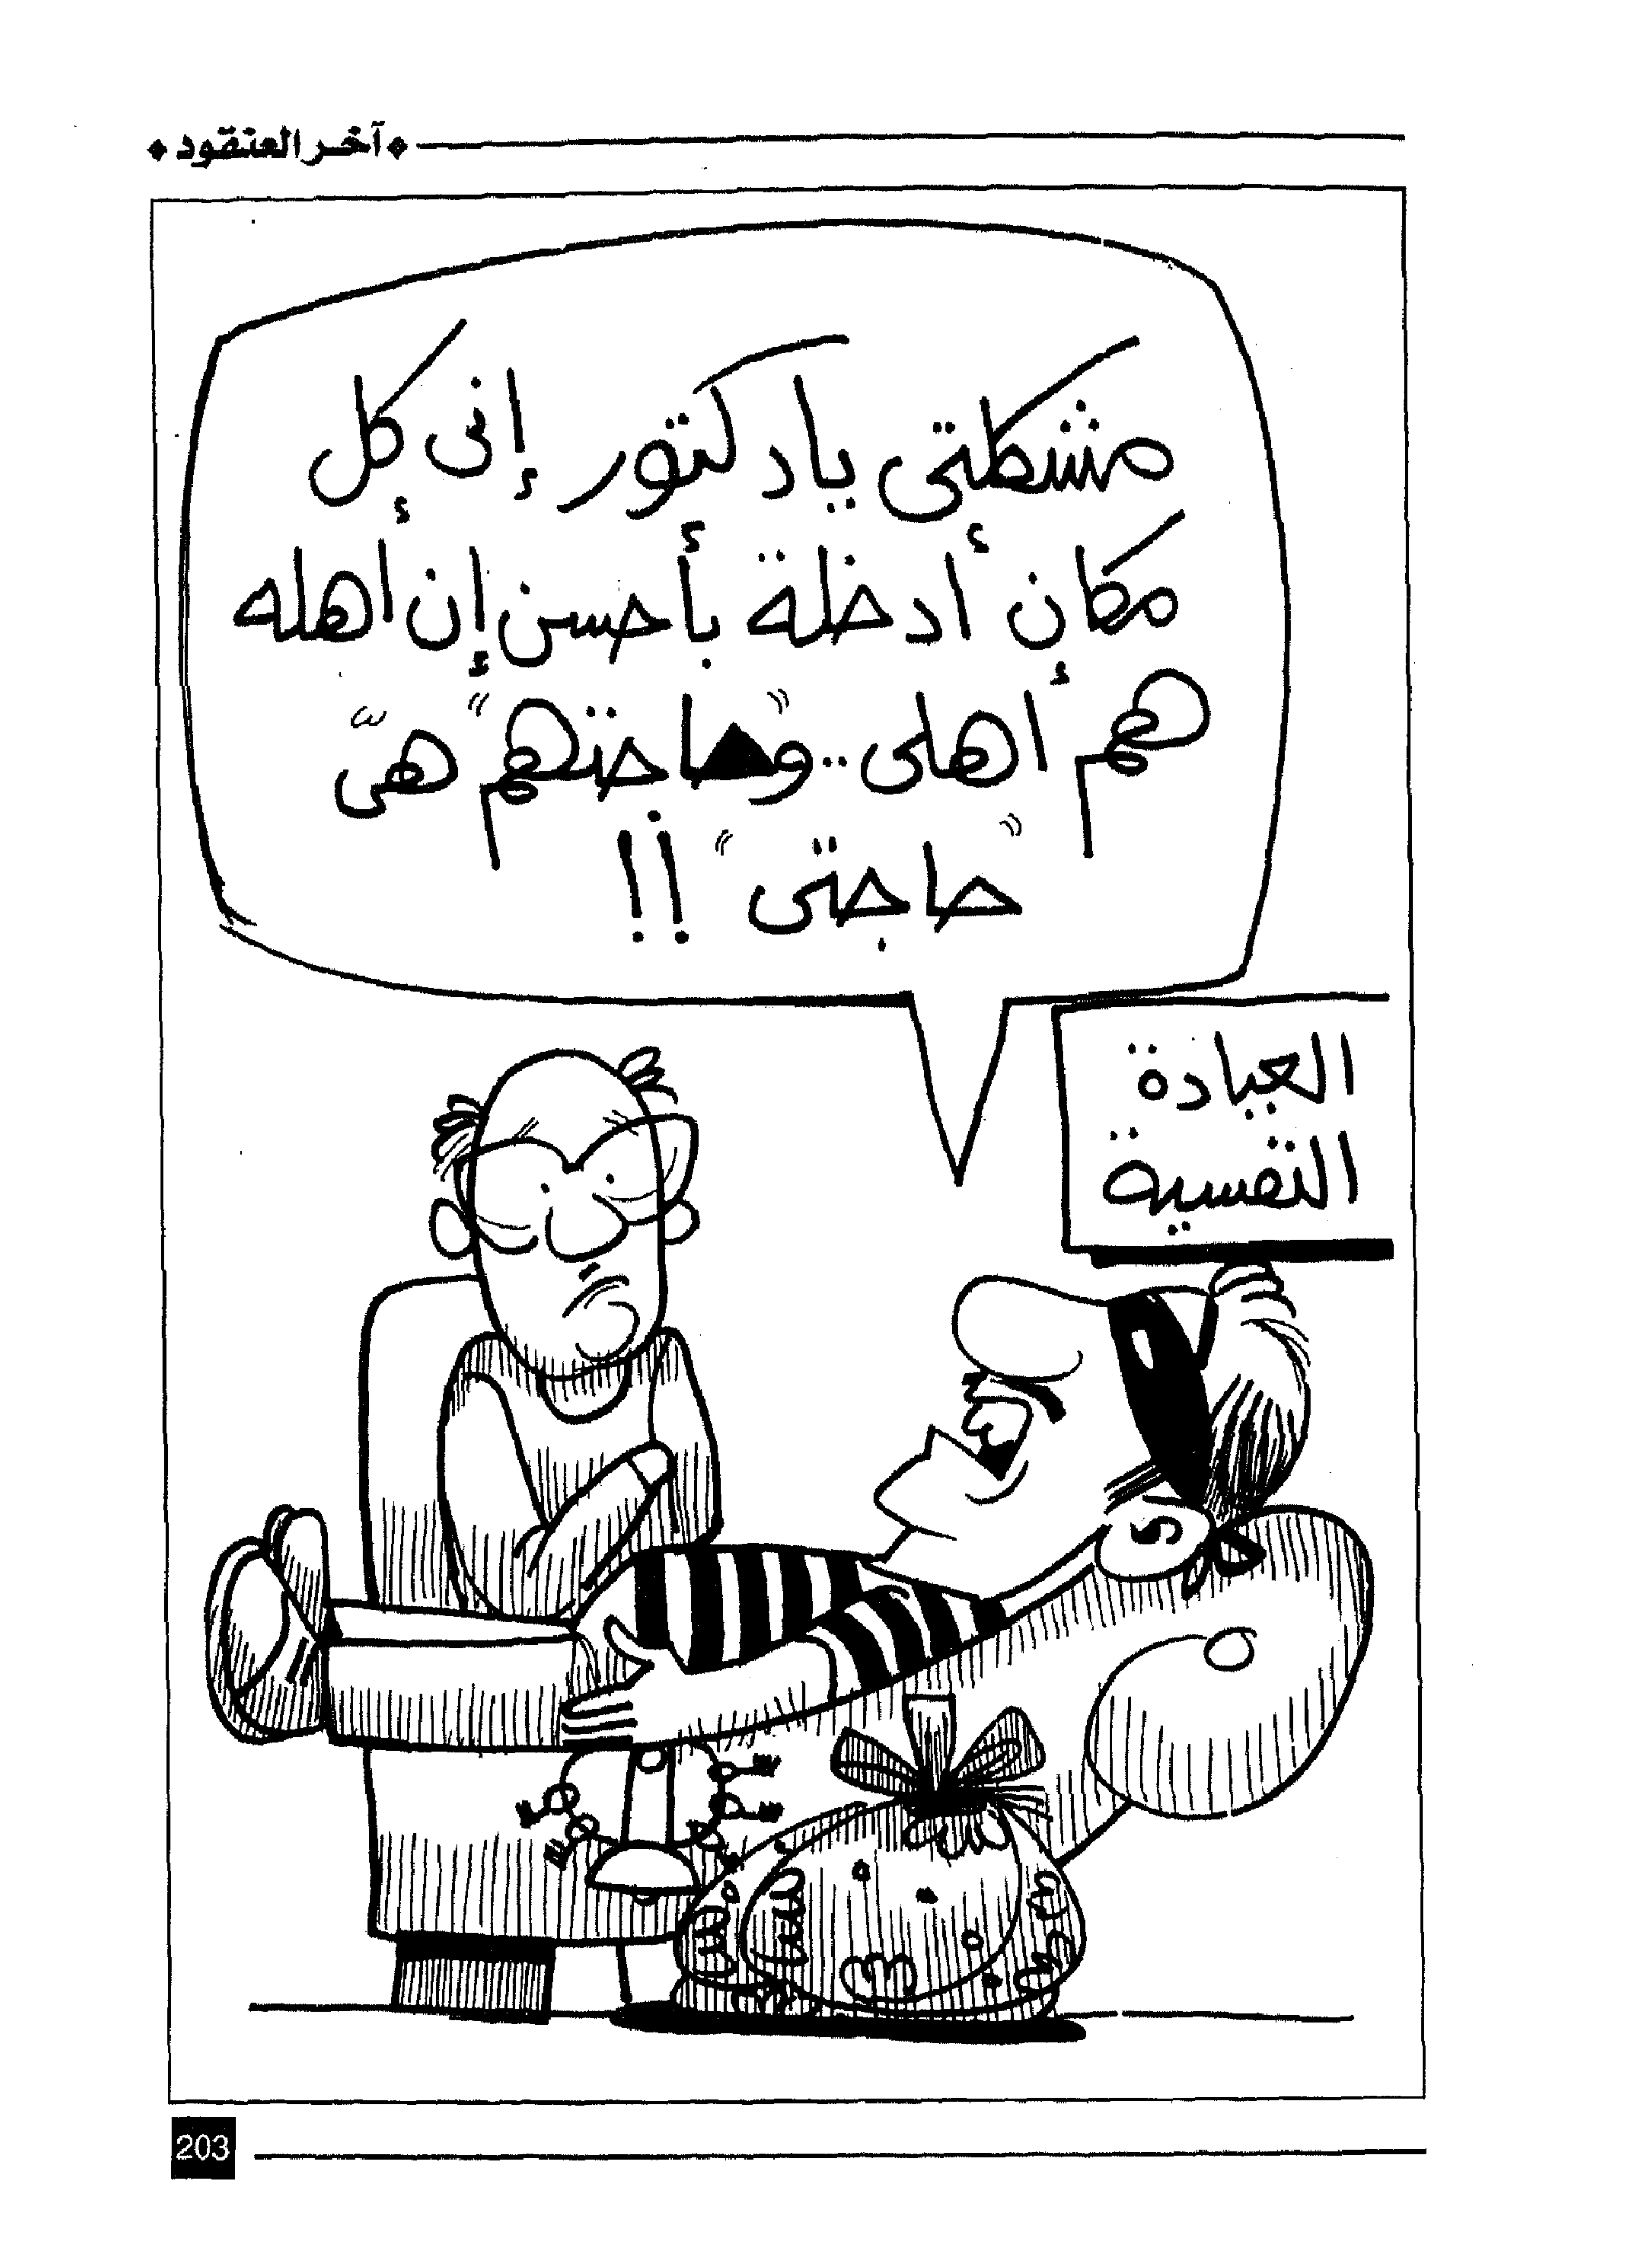 آخر العنقود
مشكلتى يا دكتور إنى كل
مكان أدخلة بأحسن إن أهله
هم أهلى .. و"حاجتهم" هىّ
"حاجتى" !!
العيادة
النفسية
203